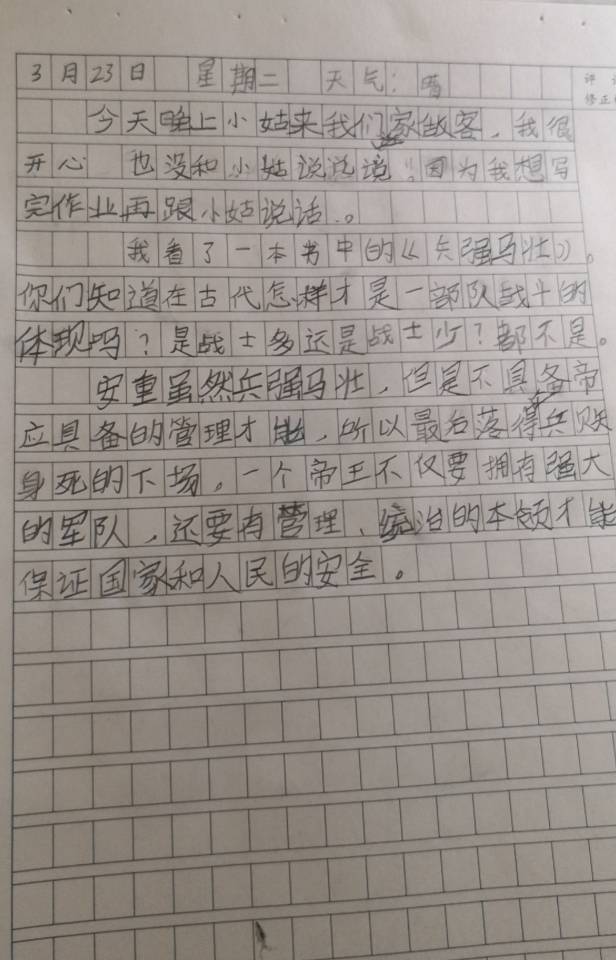 3月23日 星期二 天气：晴
今天晚上小姑来我们家做客，我很
开心 也没和小姑说说境，因为我想写
完作业再跟小姑说话。
我看了一本书中的《兵强马壮》。
你们知道在古代怎样才是一部队战斗的
体现吗？是战士多还是战士少？都不是。
安重虽然兵强马壮，但是不具备帝
应具备的管理才能，所以最后落得兵败
身死的下场。一个帝王不仅要拥有强大
的军队，还要有管理、统治的本领才能
保证国家和人民的安全。